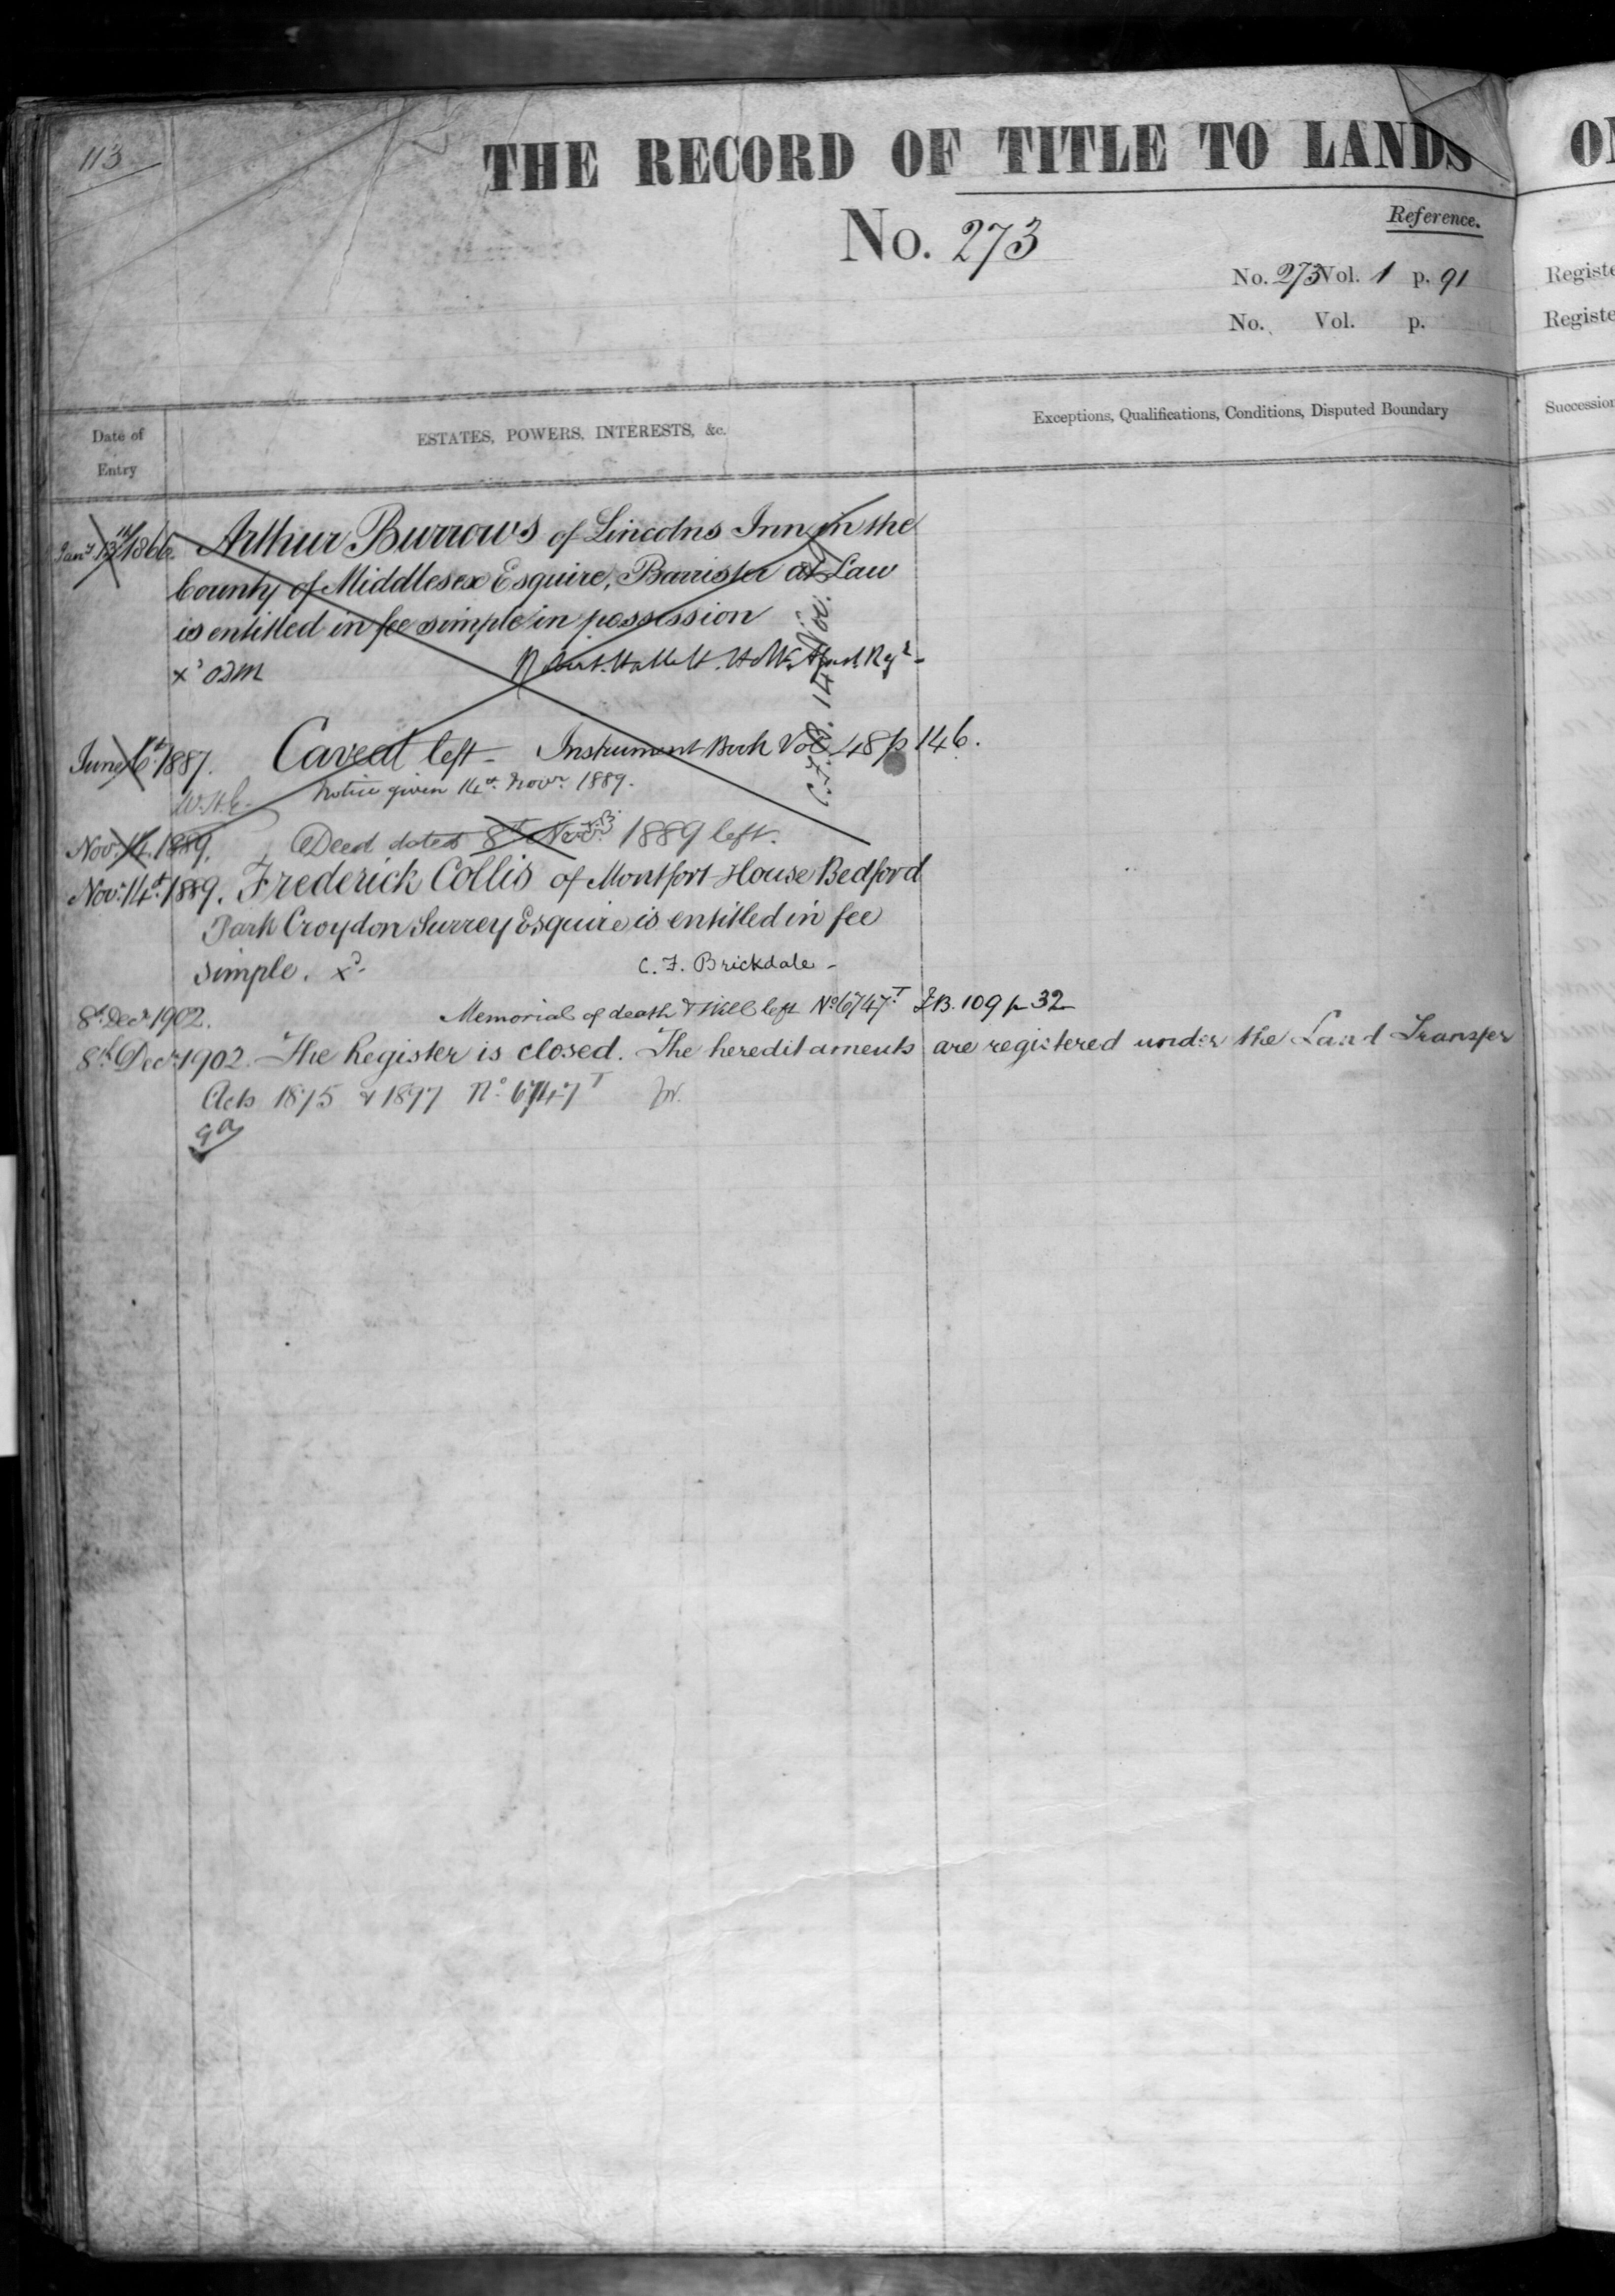 113
THE RECORD OF TITLE TO LANDS
No. 273
Reference.
No. 273 Vol. 1 p. 91
No. Vol. p.
Date of Entry
ESTATES, POWERS, INTERESTS, &c.
Exceptions, Qualifications, Conditions, Disputed Boundary
Jany 13th 1866. Arthur Burrows of Lincolns Inn in the
County of Middlesex Esquire, Barrister at Law
is entitled in fee simple in possession
June 6th 1887. Caveat left - Instrument Book Vol. 48 p 146.
W.H.E. Notice given 14th Novr. 1889.
Nov. 14. 1889. Deed dated 8th Novr. 1889 left.
Nov. 14th 1889. Frederick Collis of Montfort House Bedford
Park Croydon Surrey Esquire is entitled in fee
simple.
C. F. Brickdale -
8th Decr 1902. Memorial of death & Will left No 6747T I.B. 109 p 32
8th Decr 1902. The Register is closed. The hereditaments are registered under the Land Transfer
Acts 1875 & 1897 No 6747T
OF
Registe
Registe
Succession